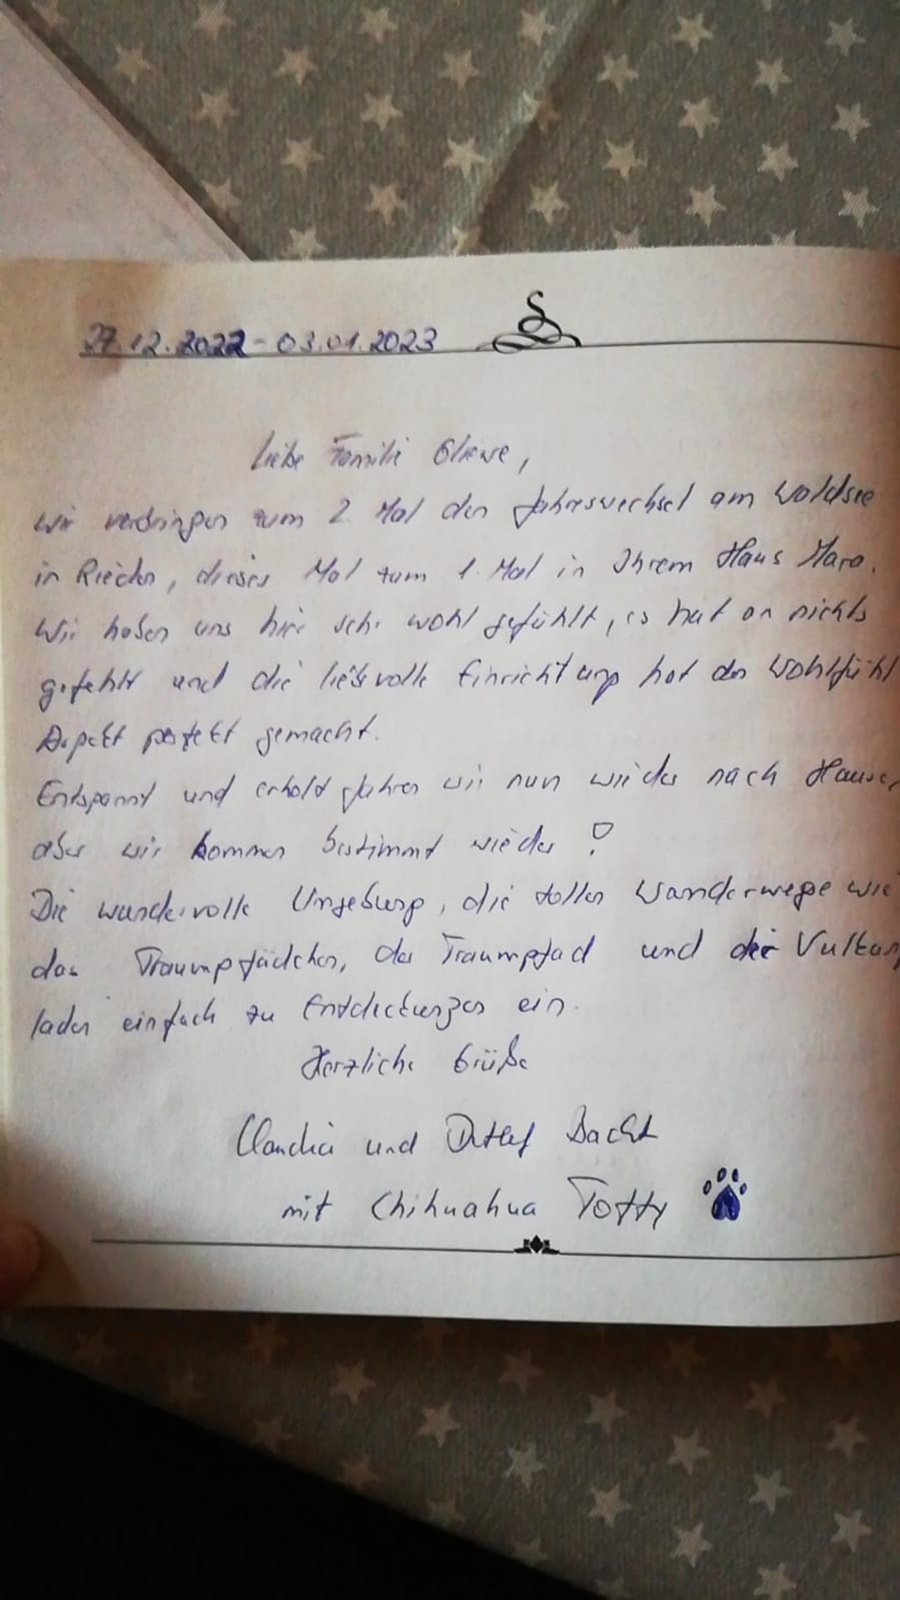 27.12.2022 - 03.01.2023
Liebe Familie Gliewe,
wir verbringen zum 2. Mal den Jahreswechsel am Waldsee
in Rieden, dieses Mal zum 1. Mal in Ihrem Haus Mara.
Wir haben uns hier sehr wohl gefühlt, es hat an nichts
gefehlt und die liebevolle Einrichtung hat den Wohlfühl
Aspekt perfekt gemacht.
Entspannt und erholt fahren wir nun wieder nach Hause,
aber wir kommen bestimmt wieder!
Die wundervolle Umgebung, die tollen Wanderwege wie
das Traumpfädchen, der Traumpfad und der Vulkan
laden einfach zu Entdeckungen ein.
Herzliche Grüße
Claudia und Detlef Bacht
mit Chihuahua Totty